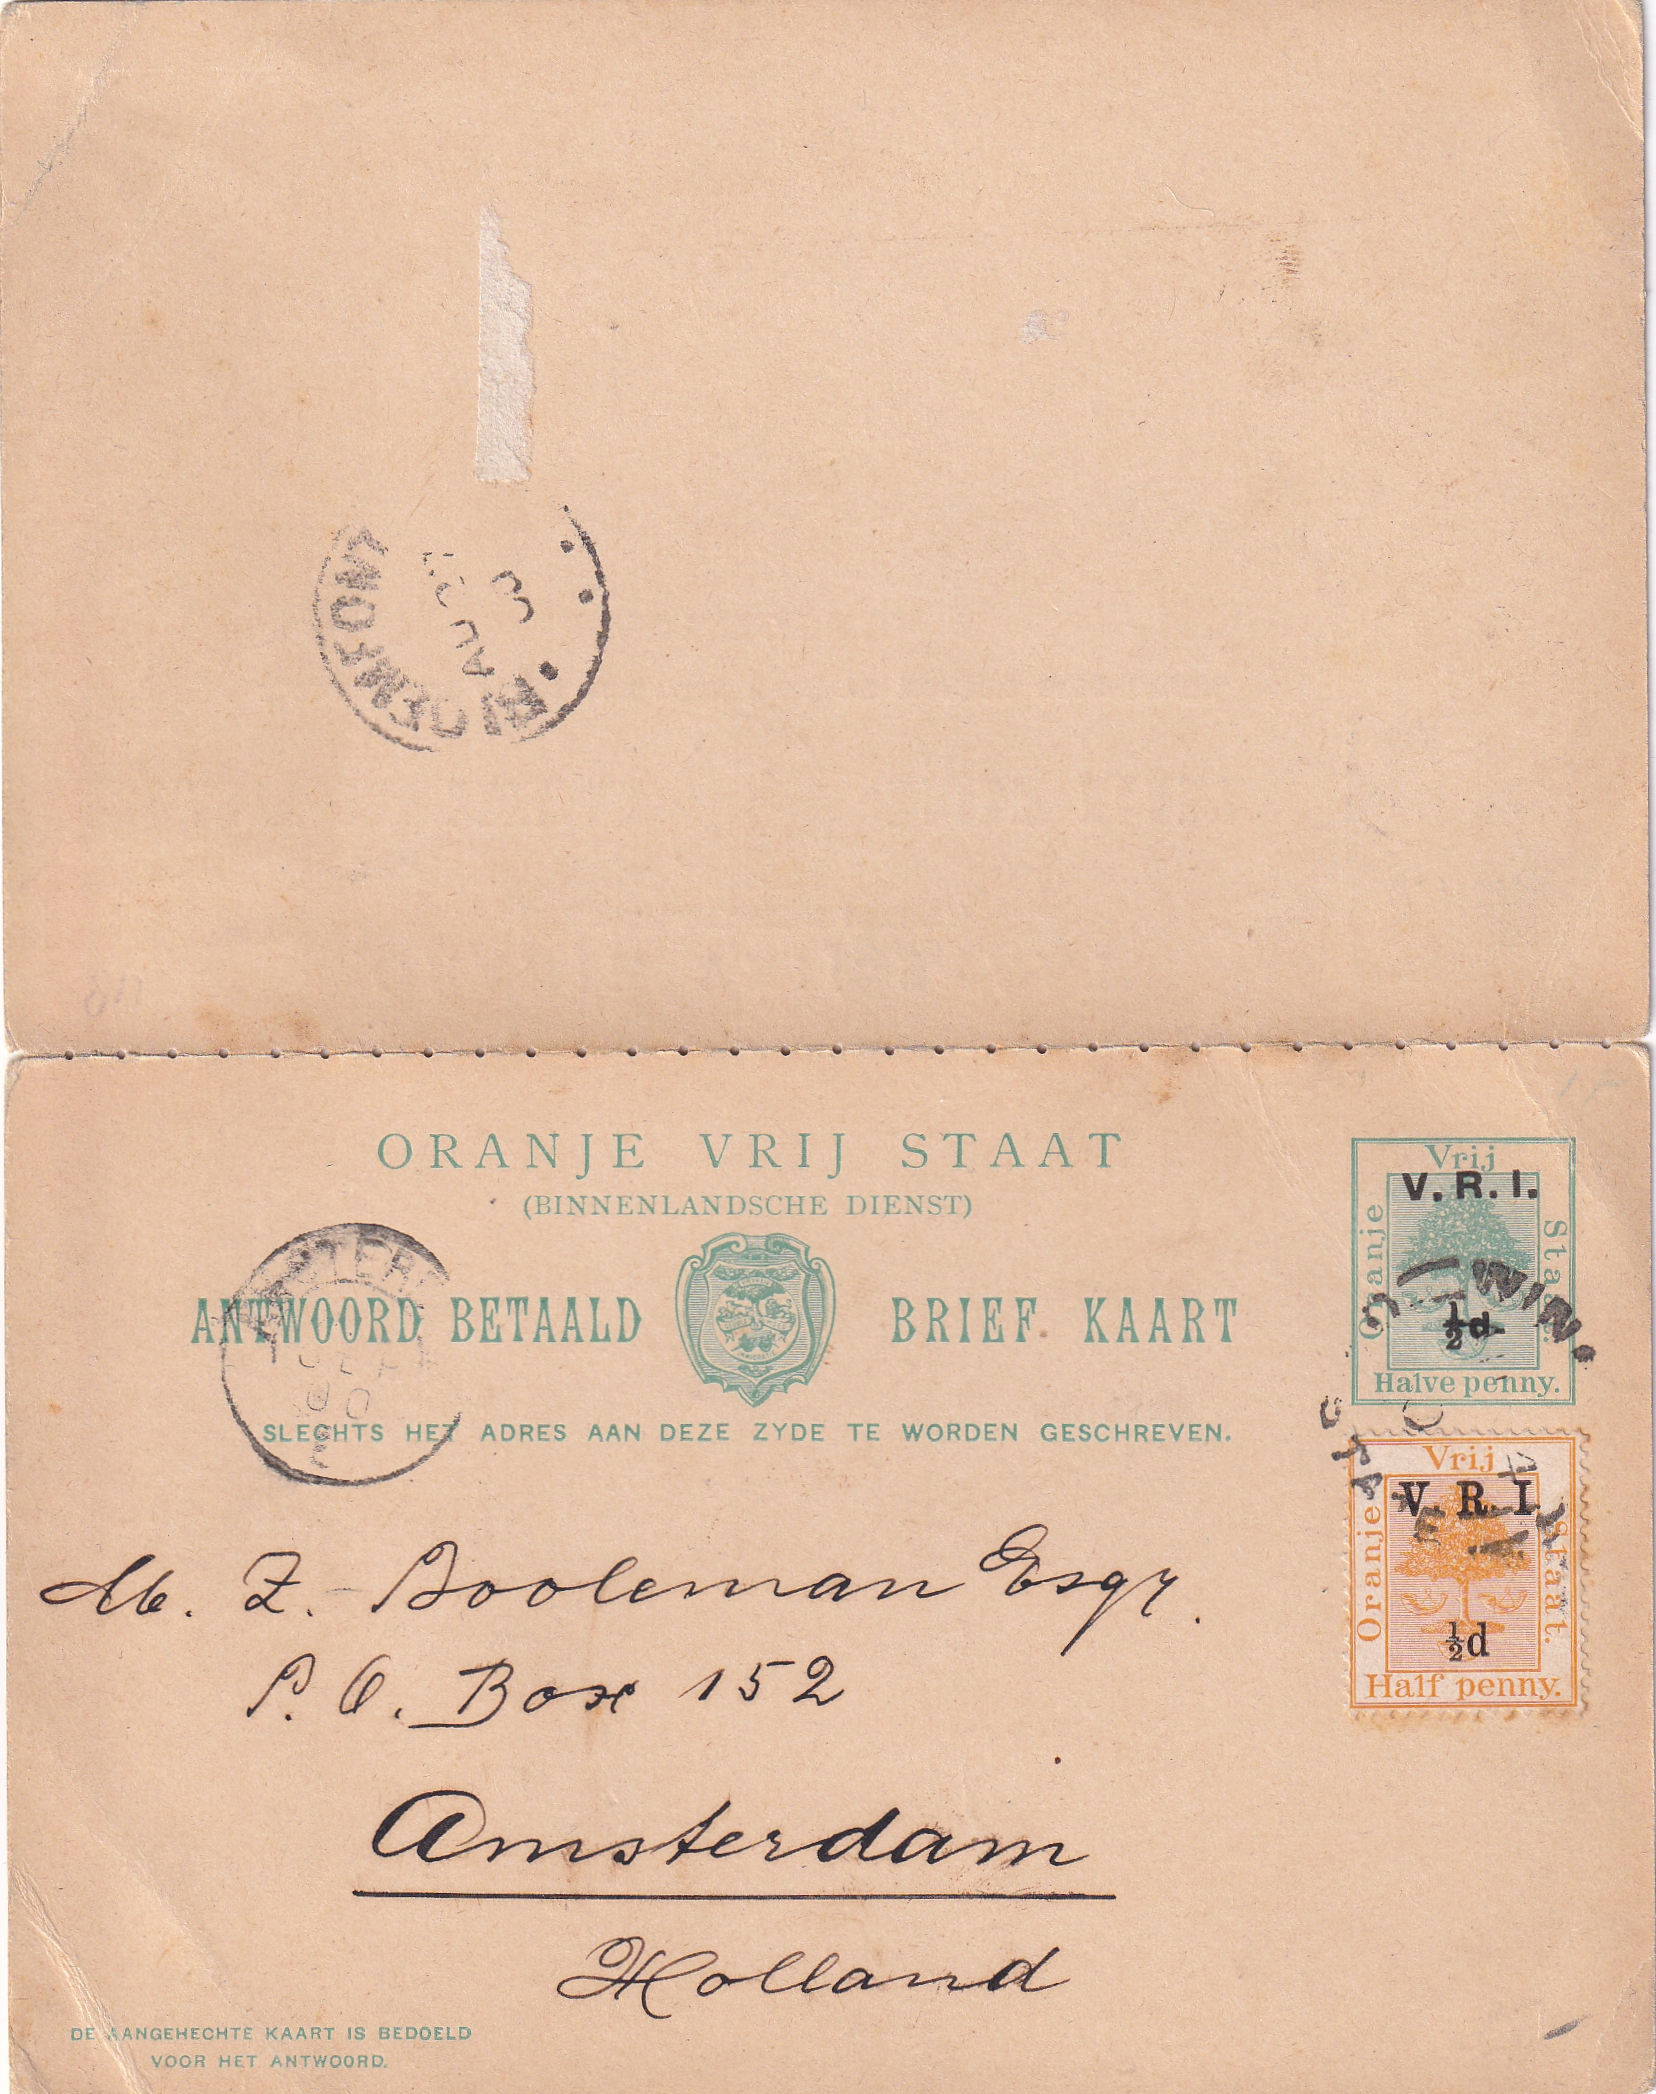 AU
3
ORANJE VRIJ STAAT
(BINNENLANDSCHE DIENST)
ANTWOORD BETAALD BRIEF KAART
SLECHTS HET ADRES AAN DEZE ZYDE TE WORDEN GESCHREVEN.
Vrij
Oranje
Staat.
V. R. I.
½d
Halve penny.
Vrij
Oranje
Staat.
V. R. I.
½d
Half penny.
M. Z. Booleman Esqr.
P. O. Box 152
Amsterdam
Holland
DE AANGEHECHTE KAART IS BEDOELD
VOOR HET ANTWOORD.